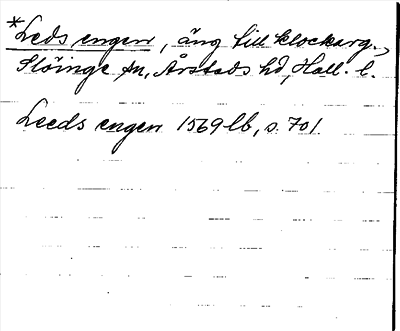 *Leds engen, äng till klockarg.,
Slöinge sn, Årstads hd, Hall. l.
Leeds engen 1569 lb, s. 701